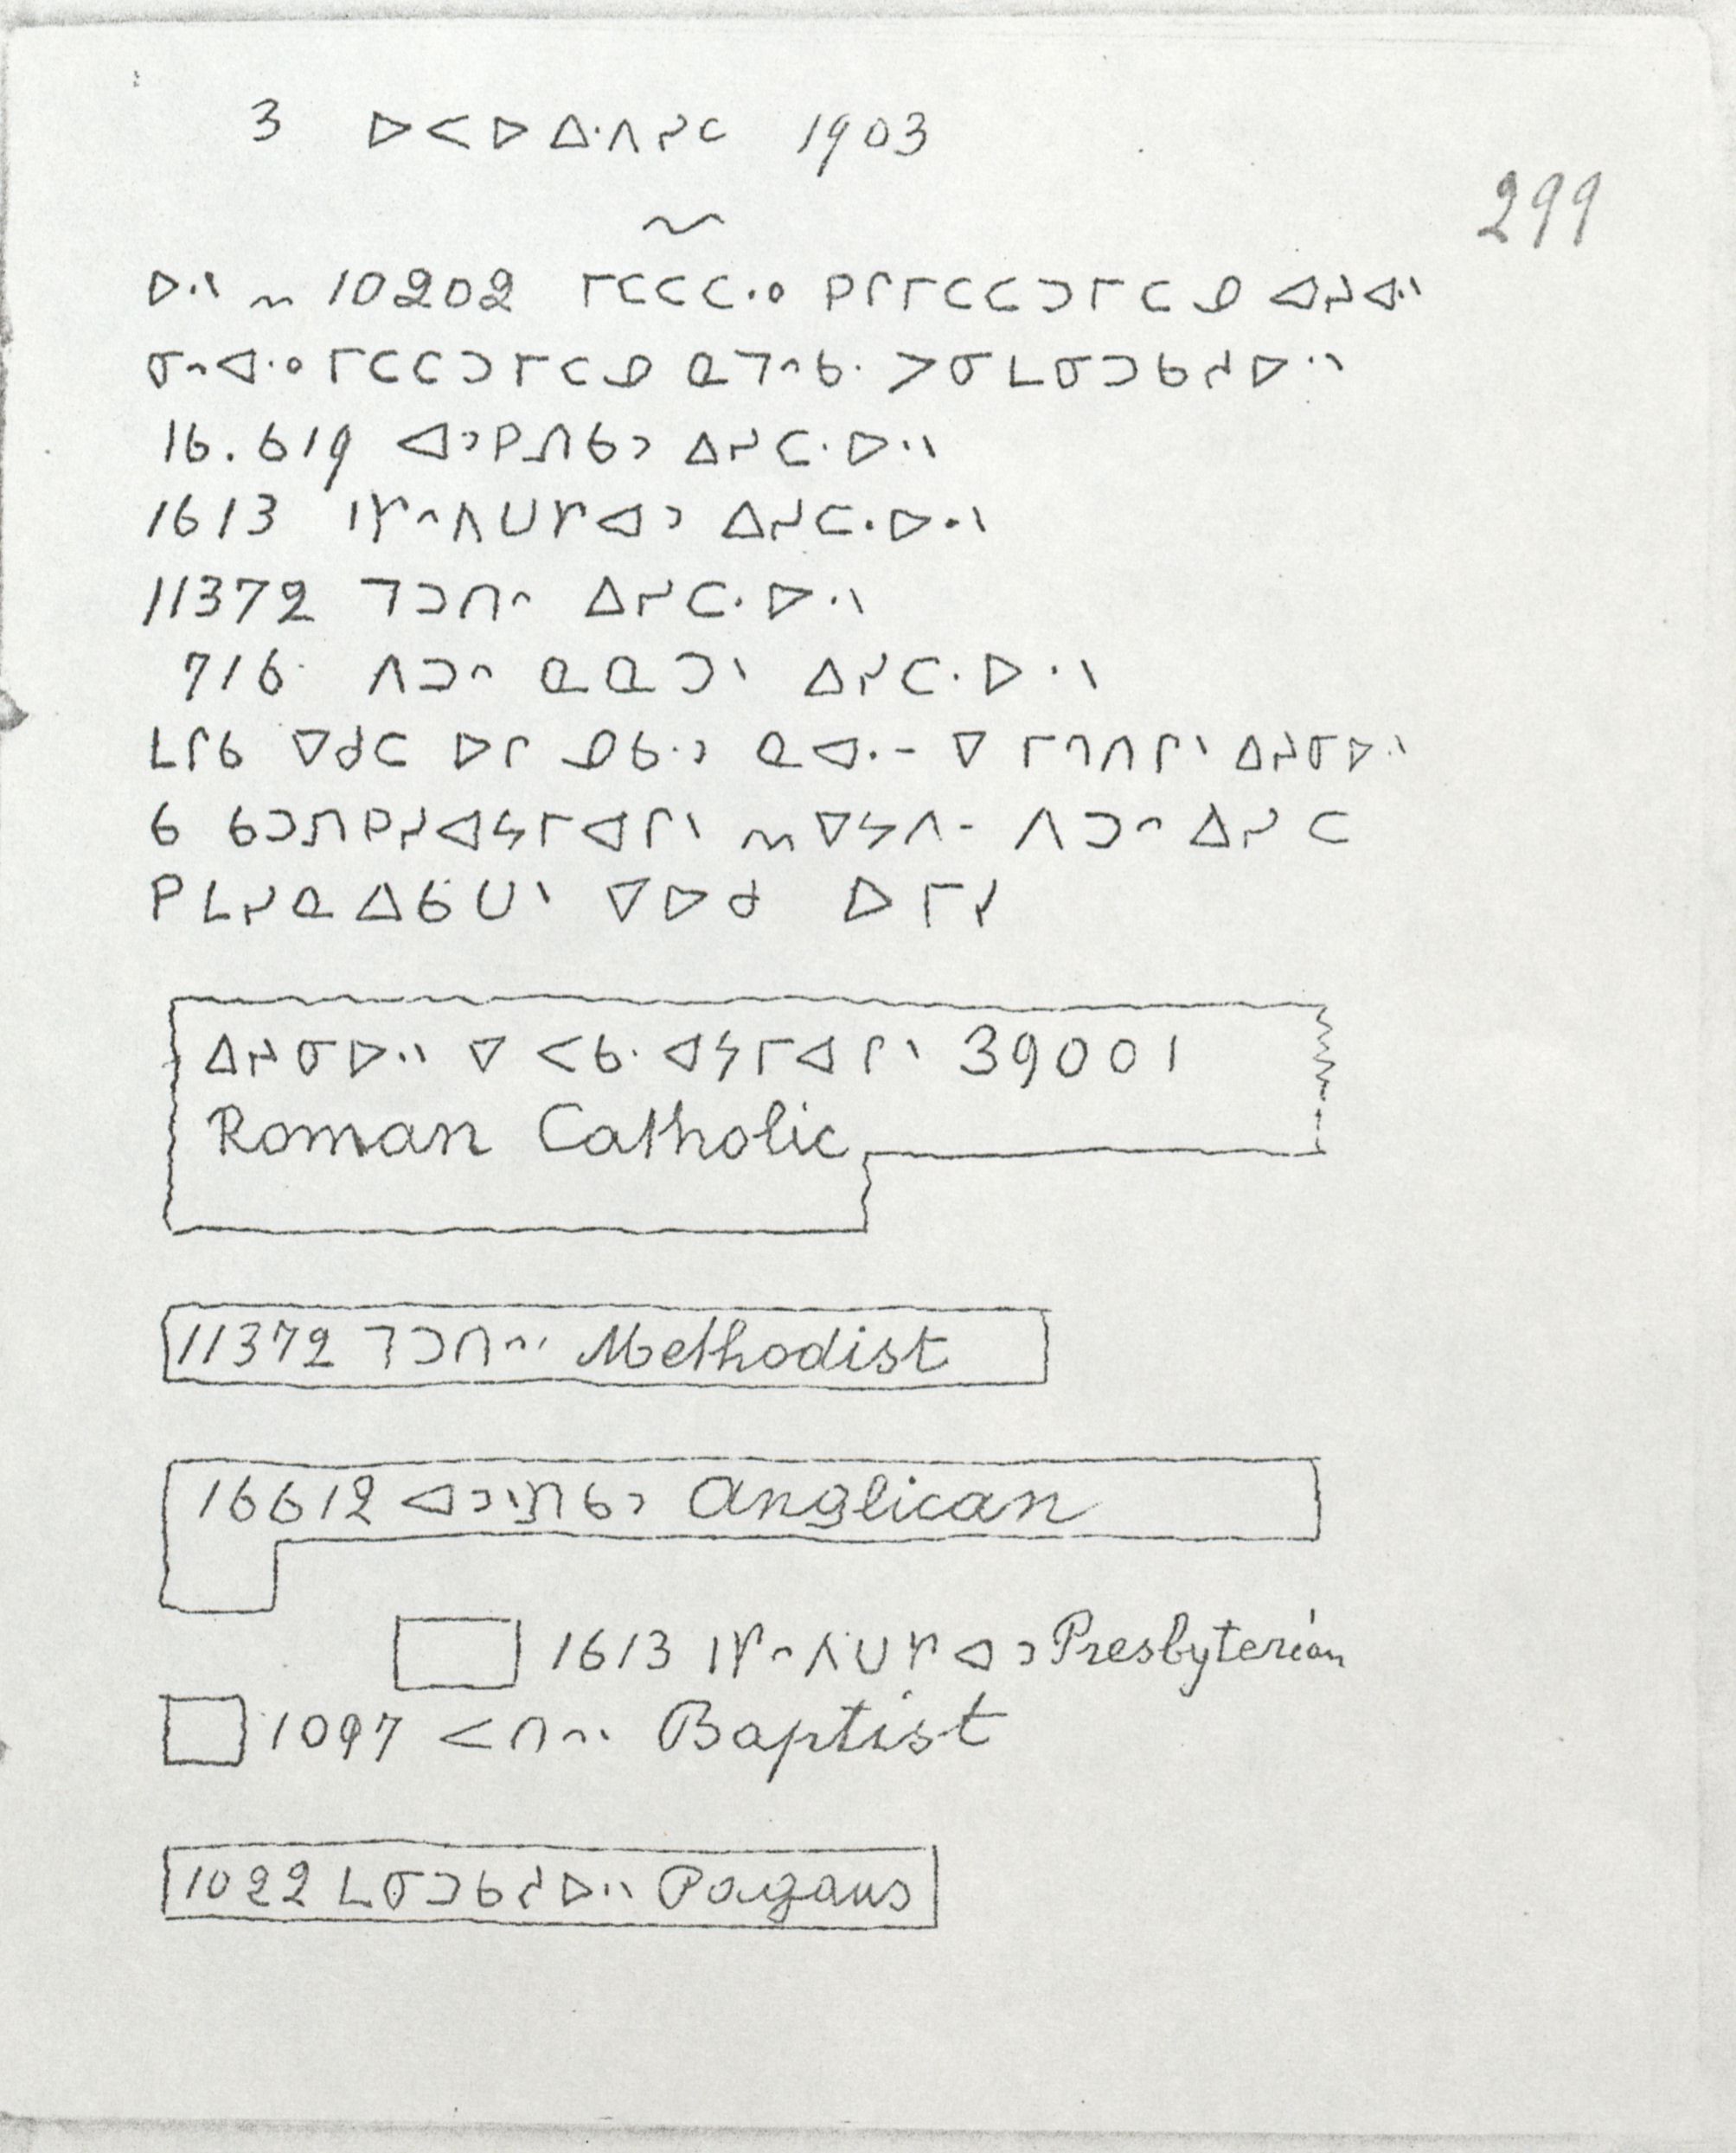 3 ᐅᐸᐅᐃᐧᐱᓯᑕ 1903
299
ᐅᐧᐠ ᓚ 10202 ᒥᑕᑕᑕᐧᐤ ᑭᒋᒥᑕᑕᑐᒥᑕᓄ ᐊᔨᐊᐧᐠ
ᓂᐢᐊᐧᐤ ᒥᑕᑕᑐᒥᑕᓄ ᓇᒣᐢᑲᐧ ᐳᓂᒪᓂᑐᑲᓱᐅᐧᐠ
16.619 ᐊᐣᑭᓕᑲᐣ ᐃᔨᑕᐧᐅᐧᐠ
1613 ᑊᕒᐢᐱᑌᕒᐊᐣ ᐃᔨᑕᐧᐅᐧᐠ
11372 ᒣᑐᑎᐢ ᐃᔨᑕᐧᐅᐧᐠ
716 ᐱᑐᐢ ᓇᓇᑐᐠ ᐃᔨᑕᐧᐅᐧᐠ
ᒪᒋᑲ ᐁᑯᑕ ᐅᒋ ᓄᑲᐧᐣ ᓇᐊᐧᐨ ᐁ ᒥᒉᑎᒋᐠ ᐃᔨᓂᐅᐧᐠ
ᑲ ᑲᑐᓕᑭᔪᐊᔭᒥᐊᒋᐠ ᓚ ᐁᔭᐱᐨ ᐱᑐᐢ ᐃᓯ ᑕ
ᑭᒪᓯᓇᐃᑲᑌᐠ ᐁᐅᑯ ᐅᒥᓯ
ᐃᔨᓂᐅᐧᐠ ᐁ ᐸᑲᐧᐊᔭᒥᐊᒋᐠ 39001
Roman Catholic
11372 ᒣᑐᑎᐢᐟ Methodist
16612 ᐊᐣᐠᓕᑲᐣ Anglican
1613 ᑊᕒᐢᐱᑌᕒᐊᐣ Presbyterian
1097 ᐸᑎᐢᐟ Baptist
1022 ᒪᓂᑐᑲᓱᐅᐧᐠ Pagans